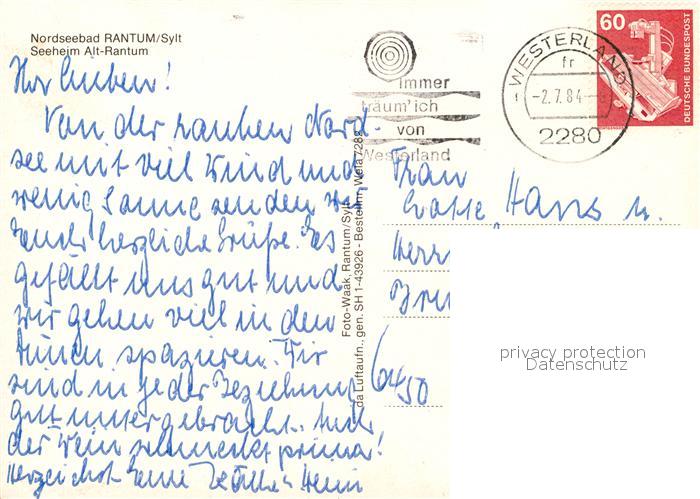 Nordseebad RANTUM/Sylt
Seeheim Alt-Rantum
Ihr Lieben!
Von der rauhen Nord-
see mit viel Wind und
wenig Sonne senden wir
Euch herzliche Grüße. Es
gefällt uns gut und
wir gehen viel in den
Dünen spazieren. Wir
sind in jeder Beziehung
gut untergebracht. Auch
der Wein schmeckt prima!
Herzlichst Eure
Foto-Waak, Rantum/Sylt
da Luftaufn., gen. SH 1-43926 - Bestellnr. Wefa 7288
immer
träum' ich
von
Westerland
WESTERLAND
fr
-2.7.84-
2280
60
DEUTSCHE BUNDESPOST
Frau
Hans u.
Herr
6450
privacy protection
Datenschutz